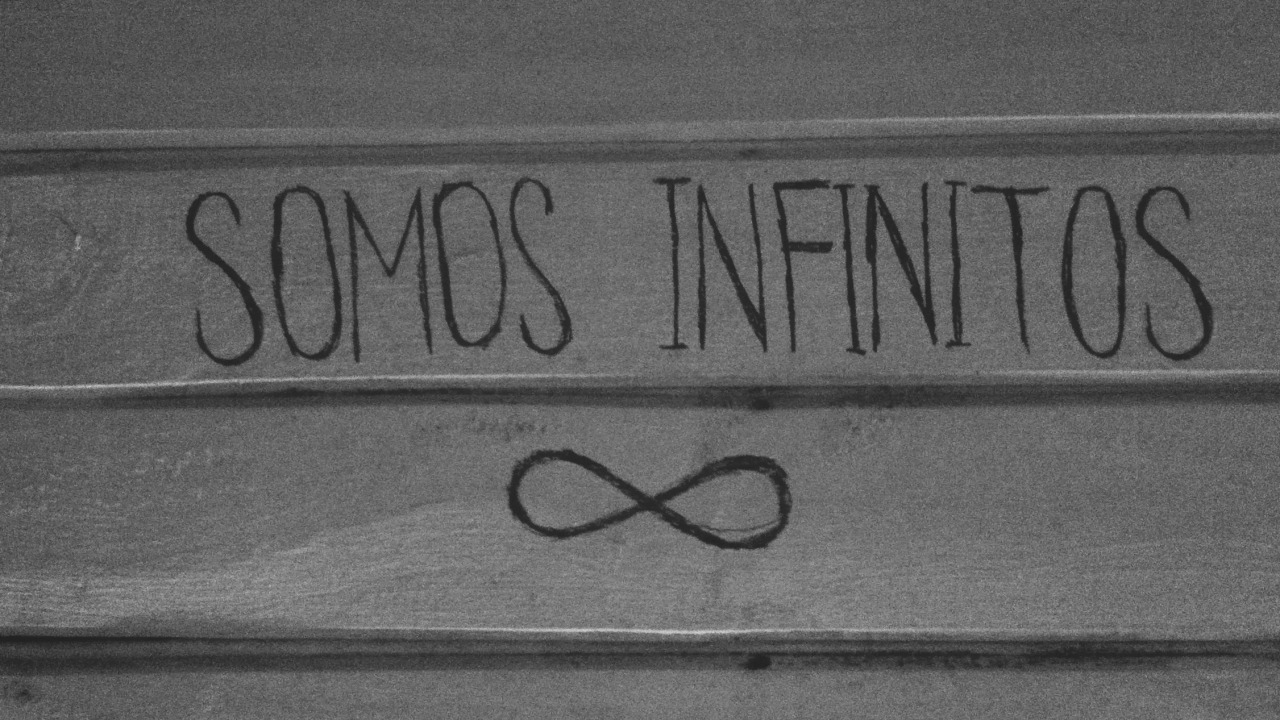 SOMOS INFINITOS
∞